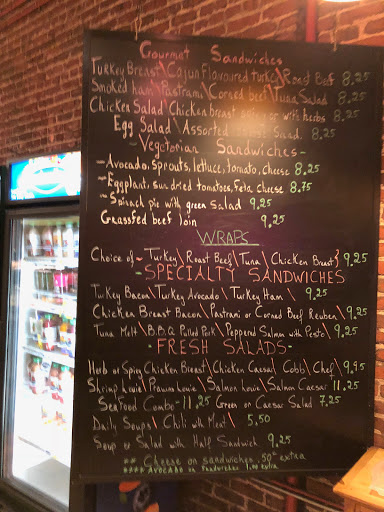 Gourmet Sandwiches
Turkey Breast\Cajun Flavoured turkey\Roast Beef 8.25
Smoked ham\Pastrami\Corned beef\Tuna Salad 8.25
Chicken Salad\Chicken breast spicy or with herbs 8.25
Egg Salad\Assorted Salad 8.25
-Vegetarian Sandwiches-
-Avocado, Sprouts, lettuce, tomato, cheese 8.25
-Eggplant, sun dried tomatoes, Feta cheese 8.75
-Spinach pie with green salad 9.25
Grassfed beef loin 9.25
WRAPS
Choice of - Turkey\Roast Beef\Tuna\Chicken Breast} 9.25
-SPECIALTY SANDWICHES
Turkey Bacon\Turkey Avocado\Turkey Ham\ 9.25
Chicken Breast Bacon\Pastrami or Corned Beef Reuben\ 9.25
Tuna Melt\B.B.Q Pulled Pork\Peppered Salmon with Pesto\ 9.25
-FRESH SALADS-
Herb or Spicy Chicken Breast\Chicken Caesar\Cobb\Chef\ 9.95
Shrimp Louie\Prawns Louie\Salmon Louie\Salmon Caesar 11.25
Seafood Combo-11.25 Green or Caesar Salad 7.25
Daily Soups\Chili with Meat\ 5.50
Soup or Salad with Half Sandwich 9.25
** Cheese on sandwiches .50¢ extra
**** Avocado on Sandwiches 1.00 extra